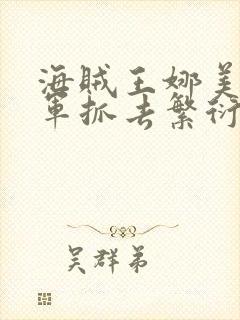 海贼王娜美
军抓去繁衍
吴群弟